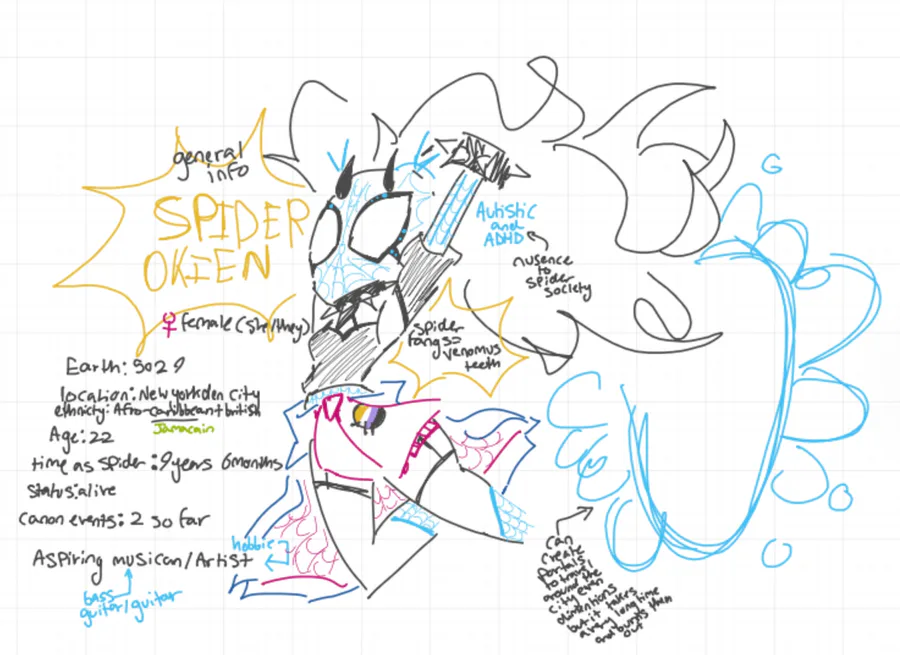 general
info
SPIDER
OKIEN
♀ female (she/they)
Earth: 5029
location: New yorkden City
ethnicity: Afro-Caribbean + british
Jamacain
Age: 22
time as spider: 9 years 6 months
status: alive
canon events: 2 so far
ASPiring musican/Artist
hobbie
bass
guitar/guitar
Autistic
and
ADHD
nusence
to
spider
society
spider
fangs=
venomus
teeth
G
can
create
portals
to travel
around the
city even
dimentions
but it takes
a very long time
and burnts then
out